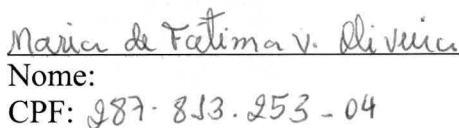 Maria de Fatima V. Oliveira
Nome:
CPF: 287. 813. 253 - 04